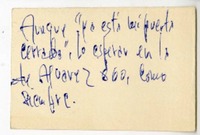 Aunque "ya está mi puerta
cerrada", lo esperan en la
de Alvarez 860, como
siempre.